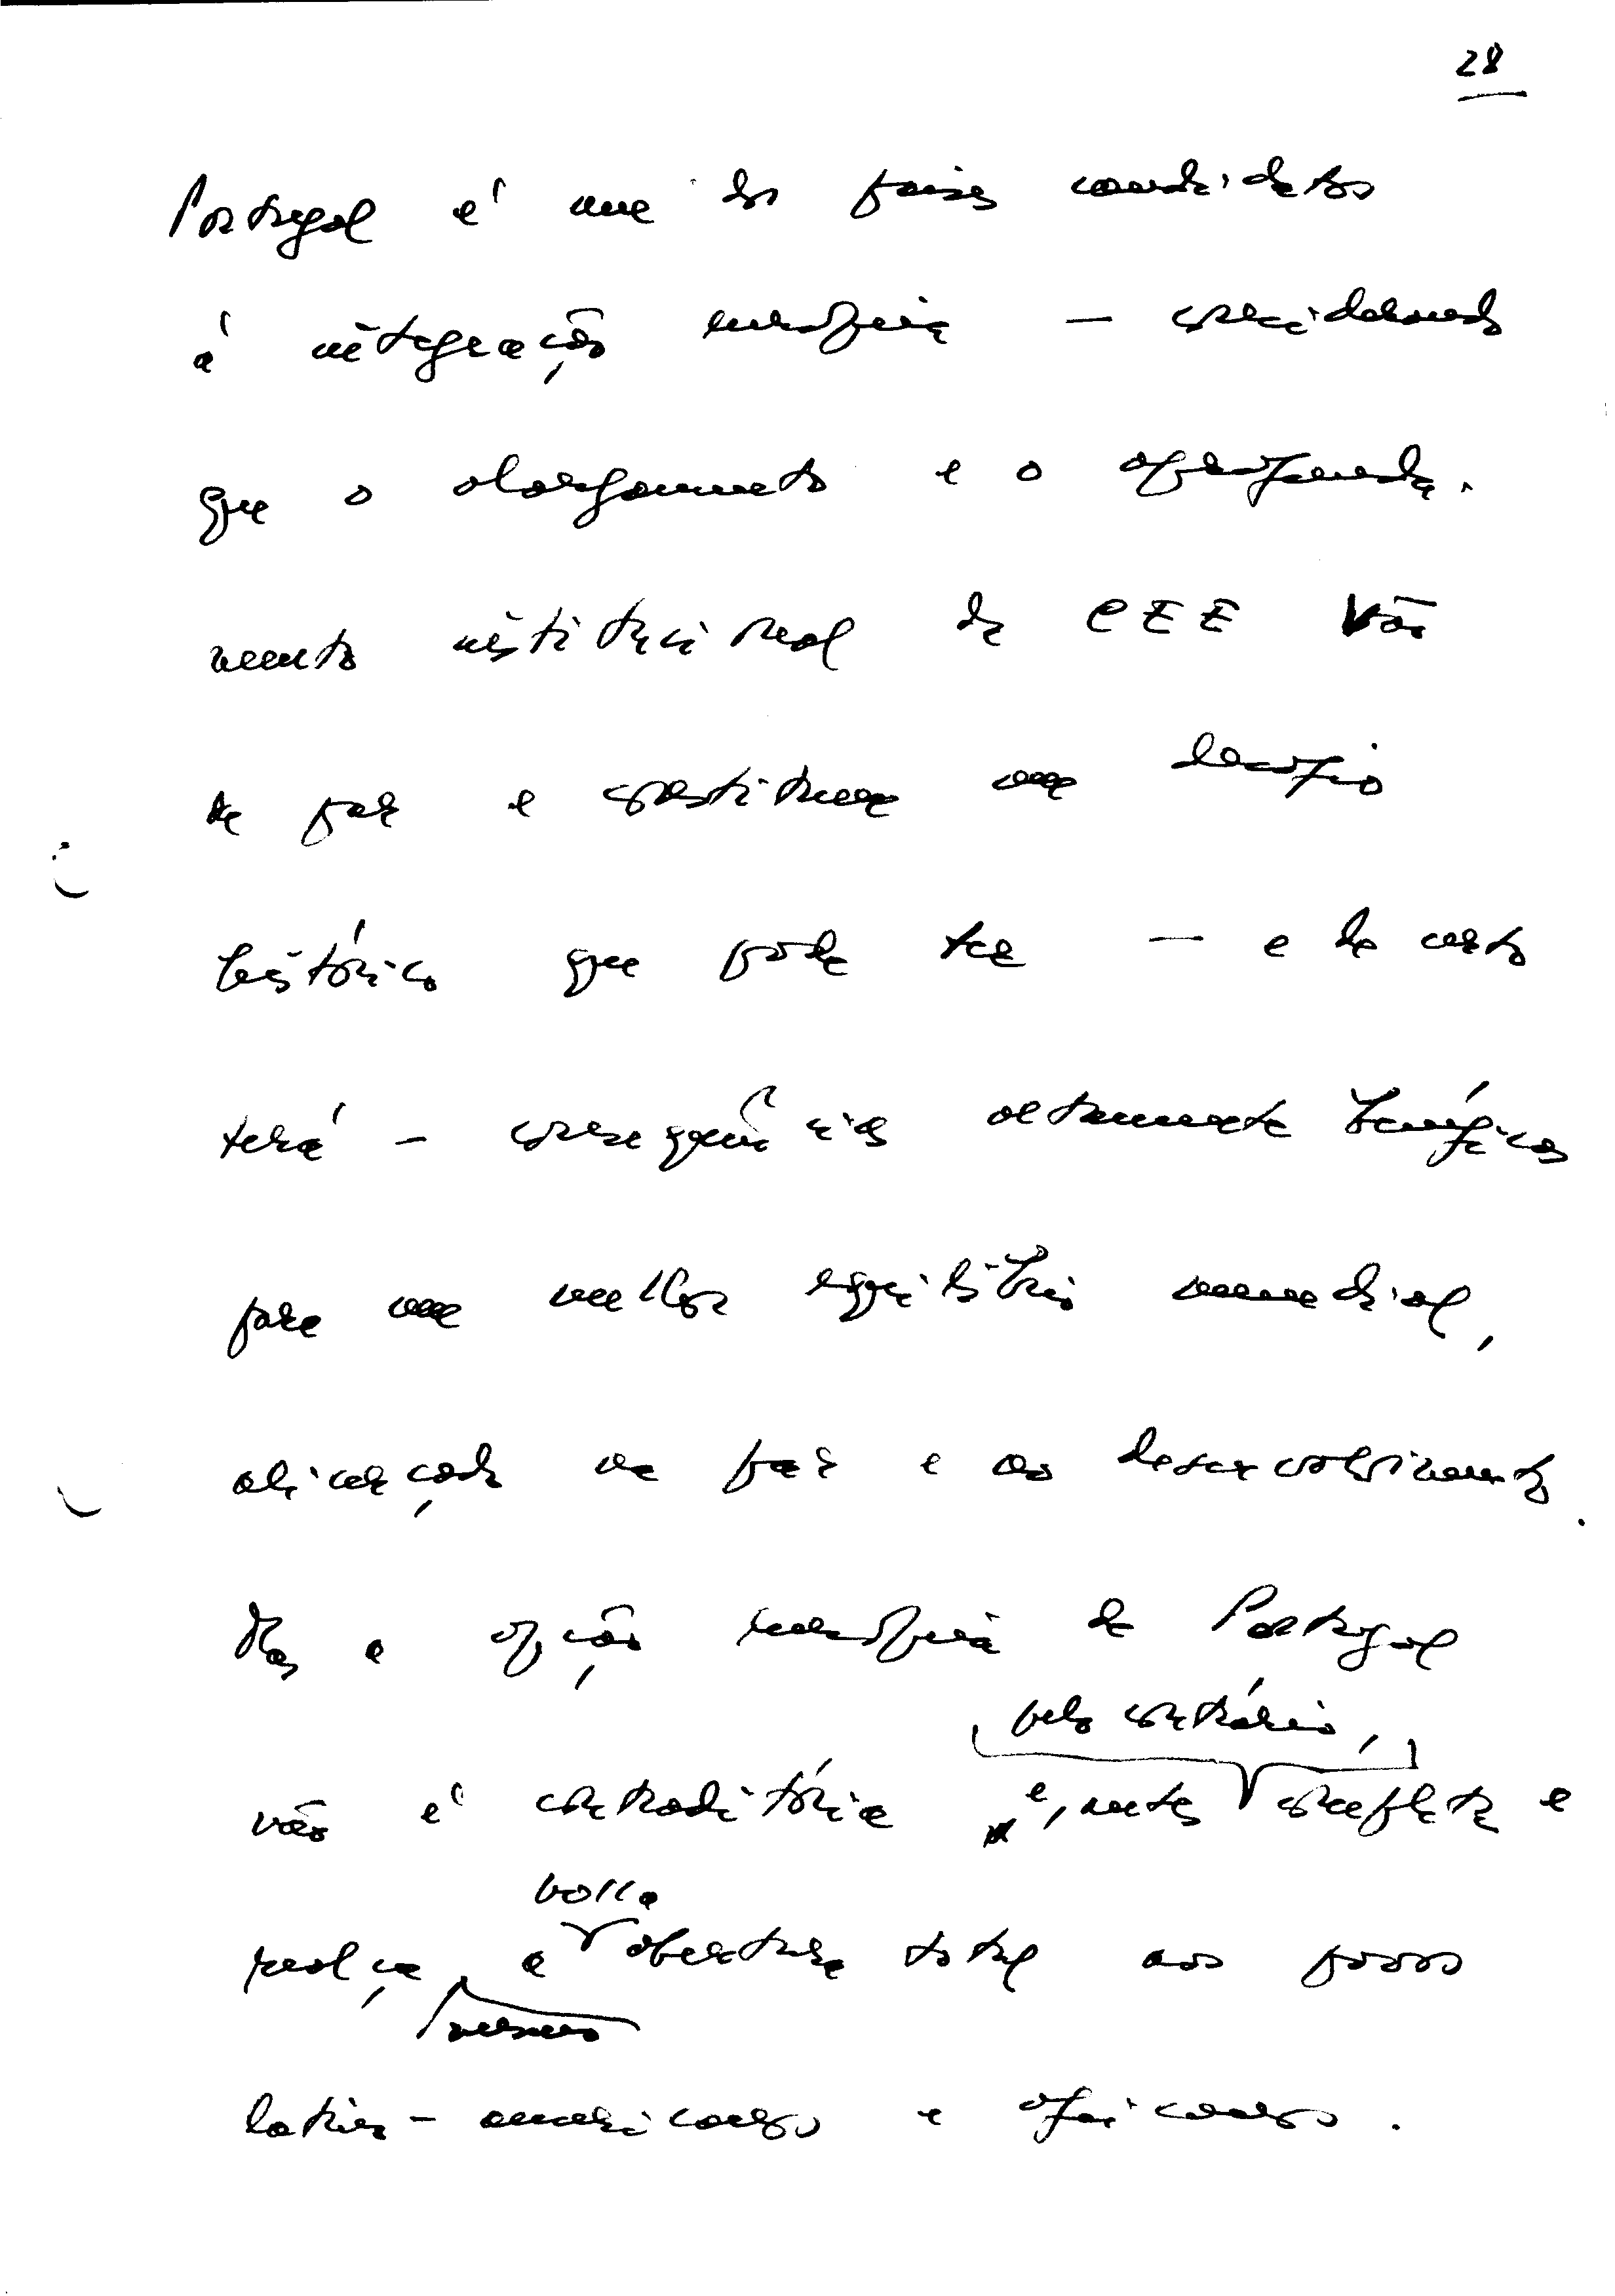 28
Portugal é um dos países candidatos
à integração europeia — considerando
que o alargamento e o aprofunda-
mento institucional da CEE vão
de par e constituem um desafio
histórico que pode ter — e de certo
terá — consequências altamente benéficas
para um melhor equilíbrio mundial,
alicerçado na paz e no desenvolvimento.
Mas a opção europeia de Portugal
pelo contrário,
não é contraditória e, antes completa e
nossa
realça, a abertura total aos povos
mesmo
latino-americanos e africanos.